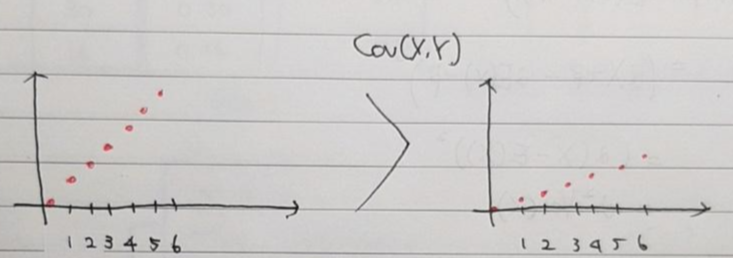 Cov(X,Y)
>
1 2 3 4 5 6
1 2 3 4 5 6